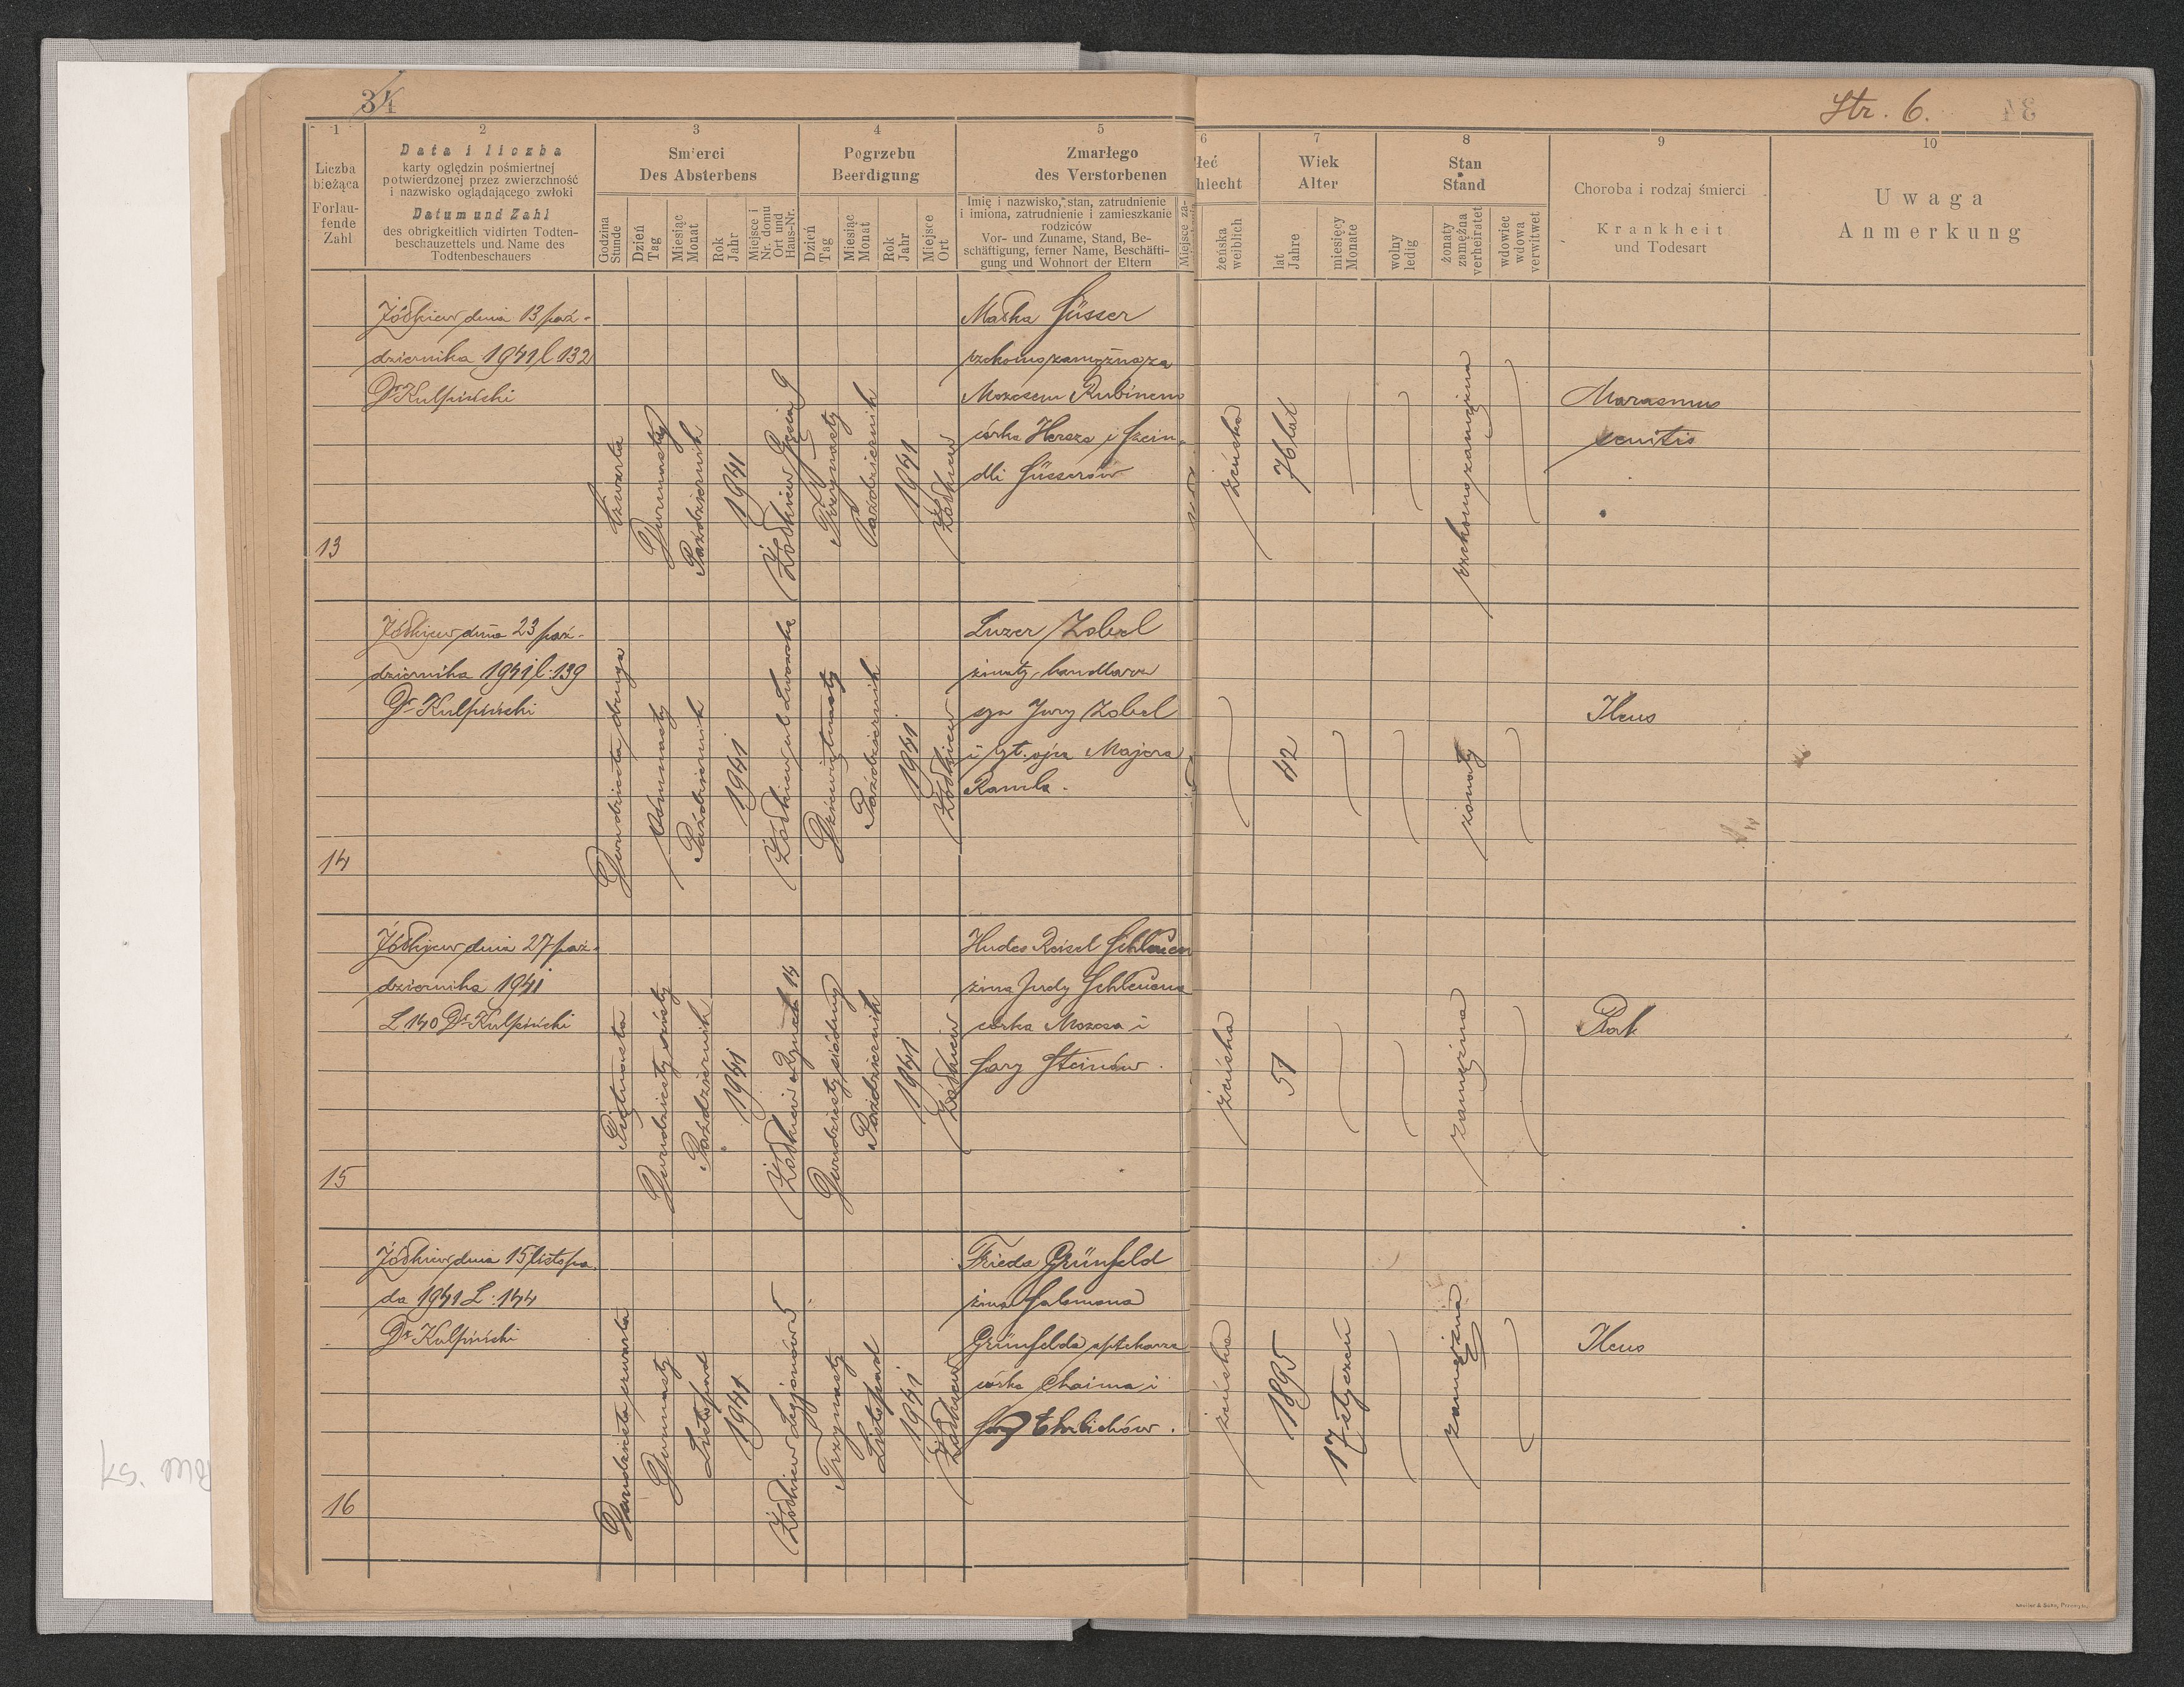 34
Str. 6.
1
2
3
4
5
6
7
8
9
10
Liczba
bieżąca
Forlau-
fende
Zahl
Data i liczba
karty oględzin pośmiertnej
potwierdzonej przez zwierzchność
i nazwisko oglądającego zwłoki
Datum und Zahl
des obrigkeitlich vidirten Todten-
beschauzettels und Name des
Todtenbeschauers
Smierci
Des Absterbens
Godzina
Stunde
Dzień
Tag
Miesiąc
Monat
Rok
Jahr
Miejsce i
Nr. domu
Ort und
Haus-Nr.
Pogrzebu
Beerdigung
Dzień
Tag
Miesiąc
Monat
Rok
Jahr
Miejsce
Ort
Zmarłego
des Verstorbenen
Imię i nazwisko, stan, zatrudnienie
i imiona, zatrudnienie i zamieszkanie
rodziców
Vor- und Zuname, Stand, Be-
schäftigung, ferner Name, Beschäfti-
gung und Wohnort der Eltern
Miejsce za-
łeć
hlecht
żeńska
weiblich
Wiek
Alter
lat
Jahre
miesięcy
Monate
Stan
Stand
wolny
ledig
żonaty
zamężna
verheiratet
wdowiec
wdowa
verwitwet
Choroba i rodzaj śmierci
Krankheit
und Todesart
Uwaga
Anmerkung
13
Żółkiew dnia 13 paź-
dziernika 1941 l 132
Dr Kulpiński
czwarta
Dwunasty
Październik
1941
Żółkiew 9
Trzynasty
Październik
1941
Żółkiew
Maska Süsser
rzekomo zamężna za
Mozesem Rubinem
córka Hersza i Szein-
dli Süsserów
żeńska
76 lat
rzekomo zamężna
Marasmus
senilis
14
Żółkiew dnia 23 paź-
dziernika 1941 l. 139
Dr Kulpiński
Dwudziesta druga
Osiemnasty
Październik
1941
Żółkiew ul. Lwowska
Dziewiętnasty
Październik
1941
Żółkiew
Luzer Zobel
żonaty, handlarz
syn Jury Zobel
i Majera
42
żonaty
Ileus
15
Żółkiew dnia 27 paź-
dziernika 1941
L 140 Dr Kulpiński
Piętnasta
Dwudziesty szósty
Październik
1941
Żółkiew Rynek 14
Dwudziesty siódmy
Październik
1941
Żółkiew
Hudes Reisel Schleuen
żona Judy Schleuena
córka Mozesa i
Sary Steinów.
żeńska
51
zamężna
Rak
16
Żółkiew dnia 15 listopa
da 1941 L: 144
Dr Kulpiński
Dwudziesta pierwsza
Dwunasty
Listopad
1941
Żółkiew Legionów 5
Trzynasty
Listopad
1941
Żółkiew
Frieda Grünfeld
żona Salomona
Grünfelda aptekarza
córka Chaima i
Sary Ehrlichów.
żeńska
1895
17 styczeń
zamężna
Ileus